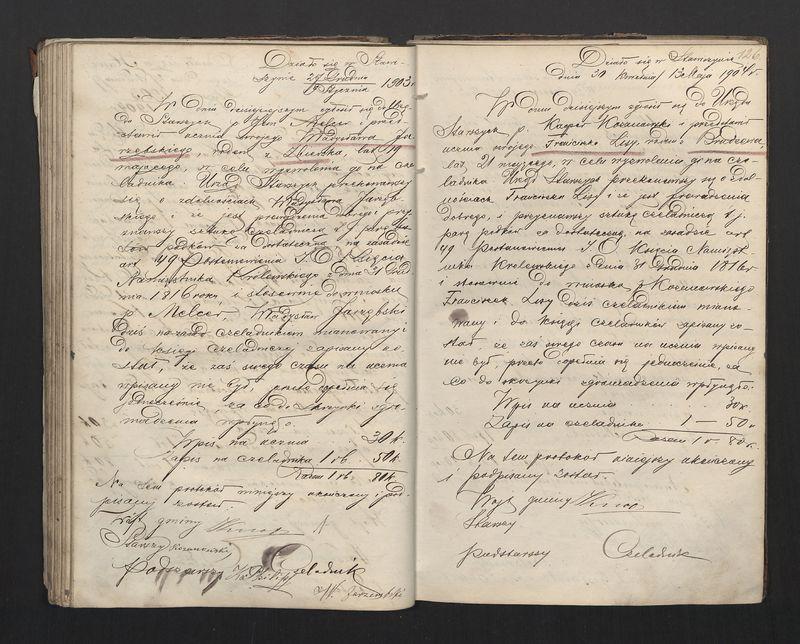 Działo się w Staw-
szynie 27 Grudnia
Stycznia 1903 r
W dniu dzisiejszym zgłosił się do Urzę
du Starszych p. Melcer i przed
stawił ucznia swojego Władysława Ja
rzębskiego, rodem z lat 19
mającego, w celu wyzwolenia go na cze
ladnika. Urząd Starszych przekonawszy
się o zdolnościach Władysława Jarzęb
skiego i że jest prowadzenia dobrego i przy
znawszy sztukę czeladniczą t. j. parę
podków za dostateczną na zasadzie
art 49 Postanowienia J. O. Księcia
Namiestnika Królewskiego z dnia 31 Grud
nia 1816 roku i stosownie do wniosku
p. Melcer, Władysław Jarzębski
dziś na czeladnikiem mianowany i
do księgi czeladniczej zapisany zo
stał, że zaś swego czasu na ucznia
wpisany nie był, przeto dopełnia się
jednocześnie, za co do skrzynki zgro
madzenia wpłynęło.
Wpis na ucznia 30 k.
Zapis na czeladnika 1 rb. 50 k.
Razem 1 rb. 80 k.
Na tem protokół niniejszy ukończony i pod-
pisany został.
Wójt gminy
Starszy
Podstarszy Czeladnik
Wł. Jarzembski
126
Działo się w Stawszynie
dnia 30 Kwietnia / 13 Maja 1904 r.
W dniu dzisiejszym zgłosił się do Urzędu
Starszych p. Kacper i przedstawił
ucznia swojego Franciszka Lisy, rodem z
lat 21 mającego, w celu wyzwolenia go na cze-
ladnika. Urząd Starszych przekonawszy się o zdol-
nościach Franciszka Lisy i że jest prowadzenia
dobrego, i przyznawszy sztukę czeladniczą t. j.
parę podków za dostateczną, na zasadzie art
49 Postanowienia J. O. Księcia Namiest-
nika Królewskiego z dnia 31 Grudnia 1816 r
i stosownie do wniosku p.
Franciszek Lisy dziś czeladnikiem miano-
wany i do księgi czeladników zapisany zo-
stał, że zaś swego czasu na ucznia wpisany
nie był, przeto dopełnia się jednocześnie, za
co do skrzynki zgromadzenia wpłynęło.
Wpis na ucznia 30 k.
Zapis na czeladnika 1 — 50 k
Razem 1 r. 80 k.
Na tem protokół niniejszy ukończony
i podpisany został.
Wójt gminy
Starszy
Podstarszy Czeladnik